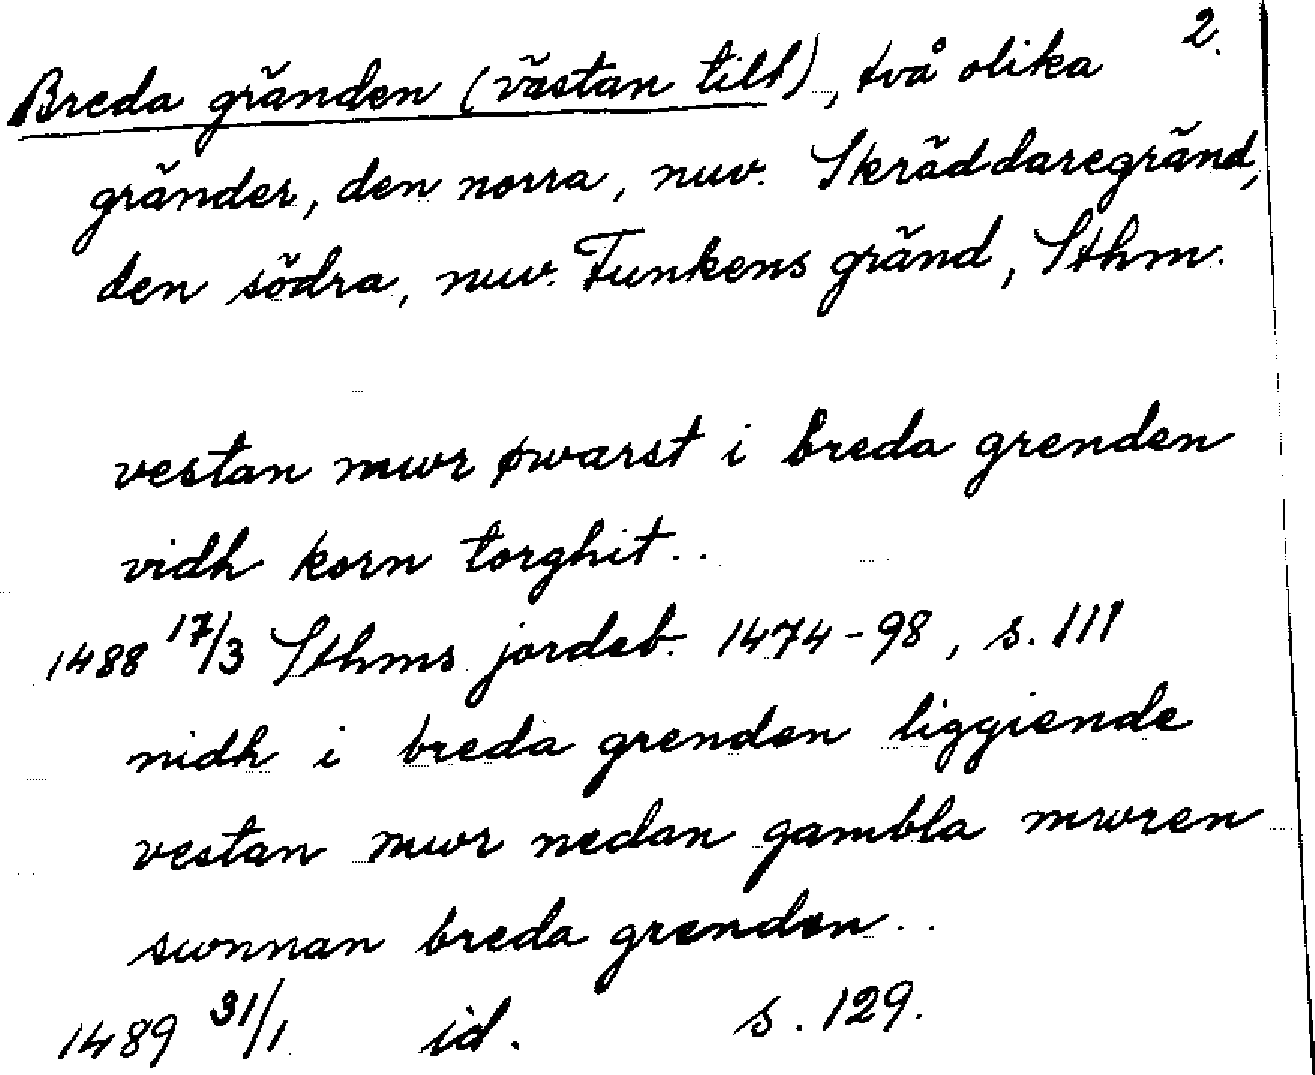 2.
Breda gränden (västan till), två olika
gränder, den norra, nuv. Skräddaregränd,
den södra, nuv. Funkens gränd, Sthm.
vestan mwr øwarst i breda grenden
vidh korn torghit..
1488 17/3 Sthms jordeb. 1474-98, s. 111
nidh i breda grenden liggiende
vestan mwr nedan gambla mwren
swnnan breda grenden..
1489 31/1 id. s. 129.